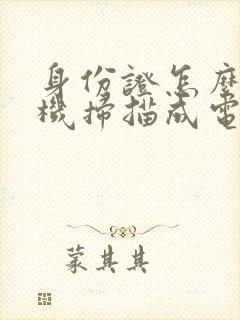 身份證怎麼
機掃描成電
蒙其其